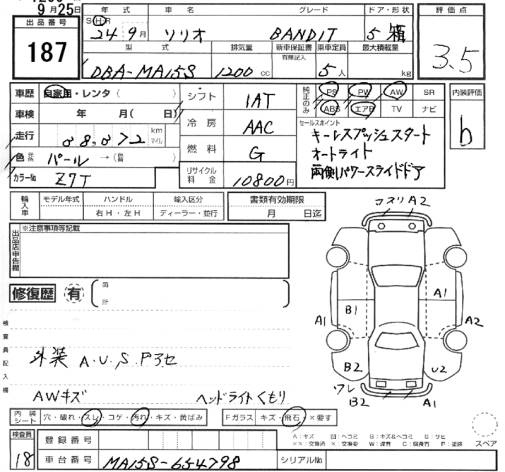 9月25日
出品番号 年式 車名 グレード ドア・形状 評価点
187
24年9月 ソリオ BANDIT 5 箱
3.5
型式 排気量 新車保証書 乗車定員 最大積載量
有無記入
DBA-MA15S 1200cc 5人 kg
車歴 自家用・レンタ( )
シフト 1AT
純正のみ PS PW AW SR
ABS エアB TV ナビ
内装評価
b
車検 年 月( 日)
冷房 AAC
セールスポイント
キーレスプッシュスタート
オートライト
両側パワースライドドア
走行 km マイル
燃料 G
色 パール →( )
カラーNo. Z7T
リサイクル料金 10800円
輸入車 モデル年式 ハンドル 輸入区分
右H・左H ディーラー・並行
書類有効期限
月 日迄
出品店申告欄 ※注意事項等記載
コスリ A2
修復歴 有
A1 B1 A1 A2
B2 U2
ワレ B2 A1
検査員記入欄
外装 A.U.S.Pアセ
AWキズ ヘッドライトくもり
内装シート 穴・破れ・スレ・コゲ・汚れ・キズ・黄ばみ Fガラス キズ・飛石・×要す
検査員 登録番号
18 車台番号 MA15S-654798 シリアルNo.
スペア